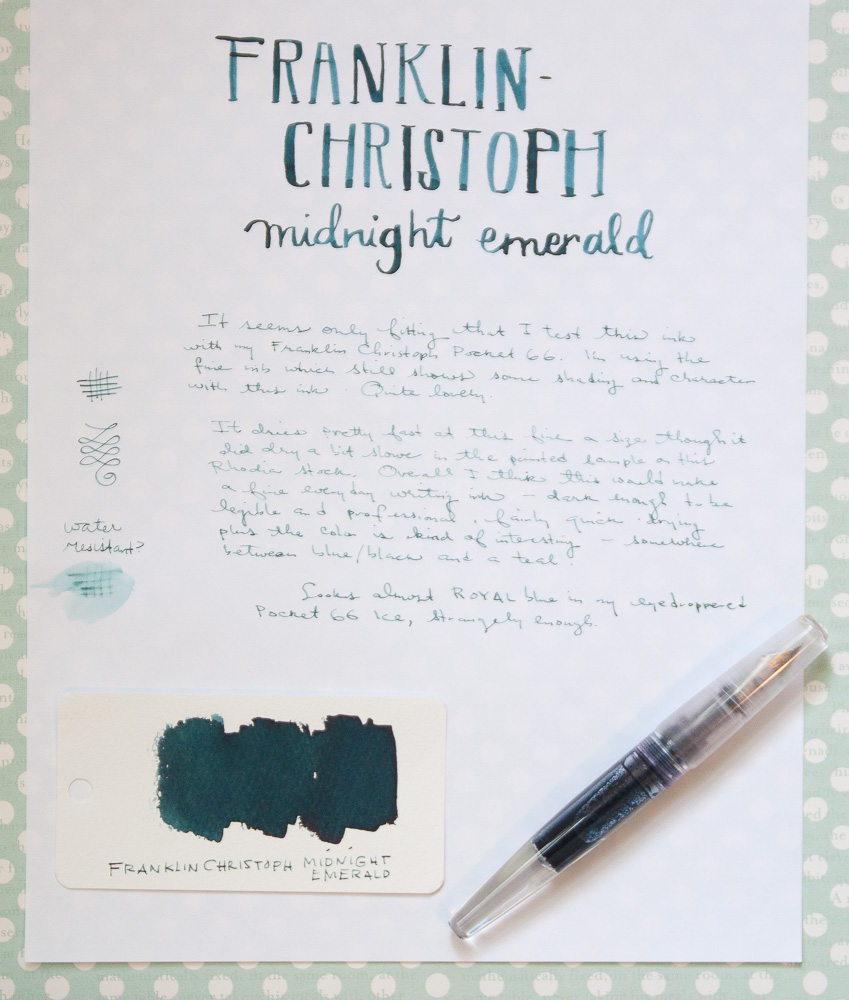 FRANKLIN-
CHRISTOPH
midnight emerald
It seems only fitting that I test this ink
with my Franklin Christoph Pocket 66. I'm using the
fine nib which still shows some shading and character
with this ink. Quite lovely.
It dries pretty fast at this fine a size though it
did dry a bit slower in the painted sample on this
Rhodia stock. Overall I think this would make
a fine everyday writing ink - dark enough to be
legible and professional, fairly quick drying
plus the color is kind of interesting - somewhere
between blue/black and a teal.
water
resistant?
Looks almost ROYAL blue in my eyedroppered
Pocket 66 Ice, strangely enough.
FRANKLIN CHRISTOPH MIDNIGHT
EMERALD